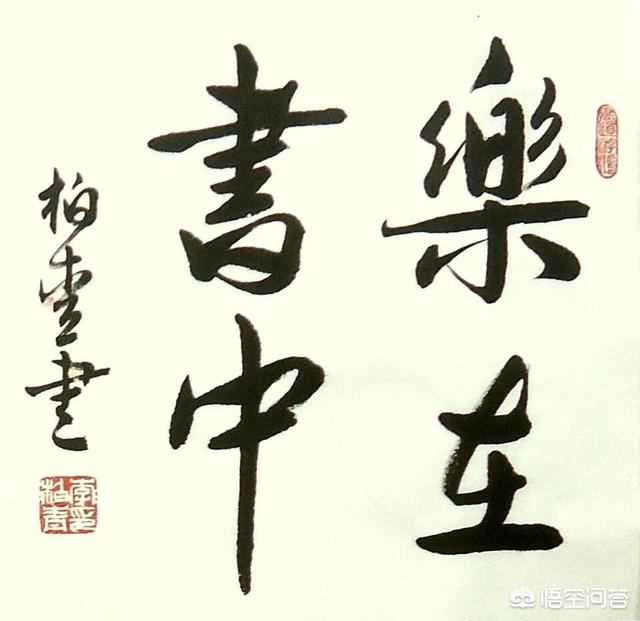 樂在
書中
柏書
悟空问答